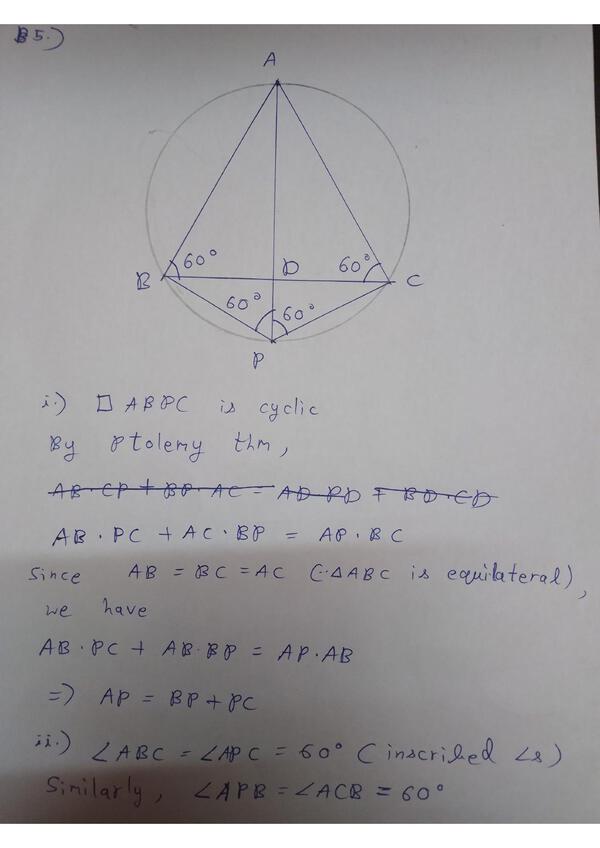 B5.)
A
60°
60°
B
D
C
60°
60°
P
i.) □ ABPC is cyclic
By Ptolemy thm,
AB·CP + BP·AC = AD·PD + BD·CD
AB·PC + AC·BP = AP·BC
Since AB = BC = AC (∵ΔABC is equilateral),
we have
AB·PC + AB·BP = AP·AB
=) AP = BP + PC
ii.) ∠ABC = ∠APC = 60° (inscribed ∠s)
Similarly, ∠APB = ∠ACB = 60°